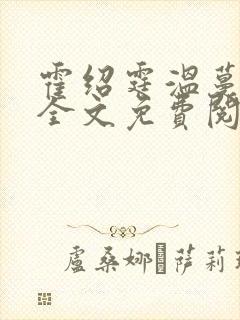 霍绍霆温蔓
全文免費閱
盧桑娜 萨莉